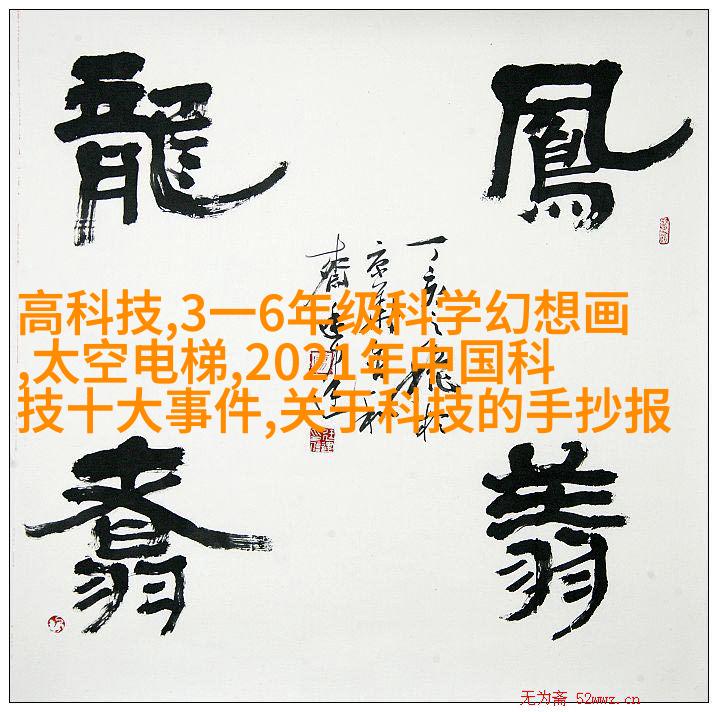 鳳翔
龍翥
丁亥之
高科技,3一6年级科学幻想画
,太空电梯,2021年中国科
技十大事件,关于科技的手抄报
无为斋 52wwz.cn